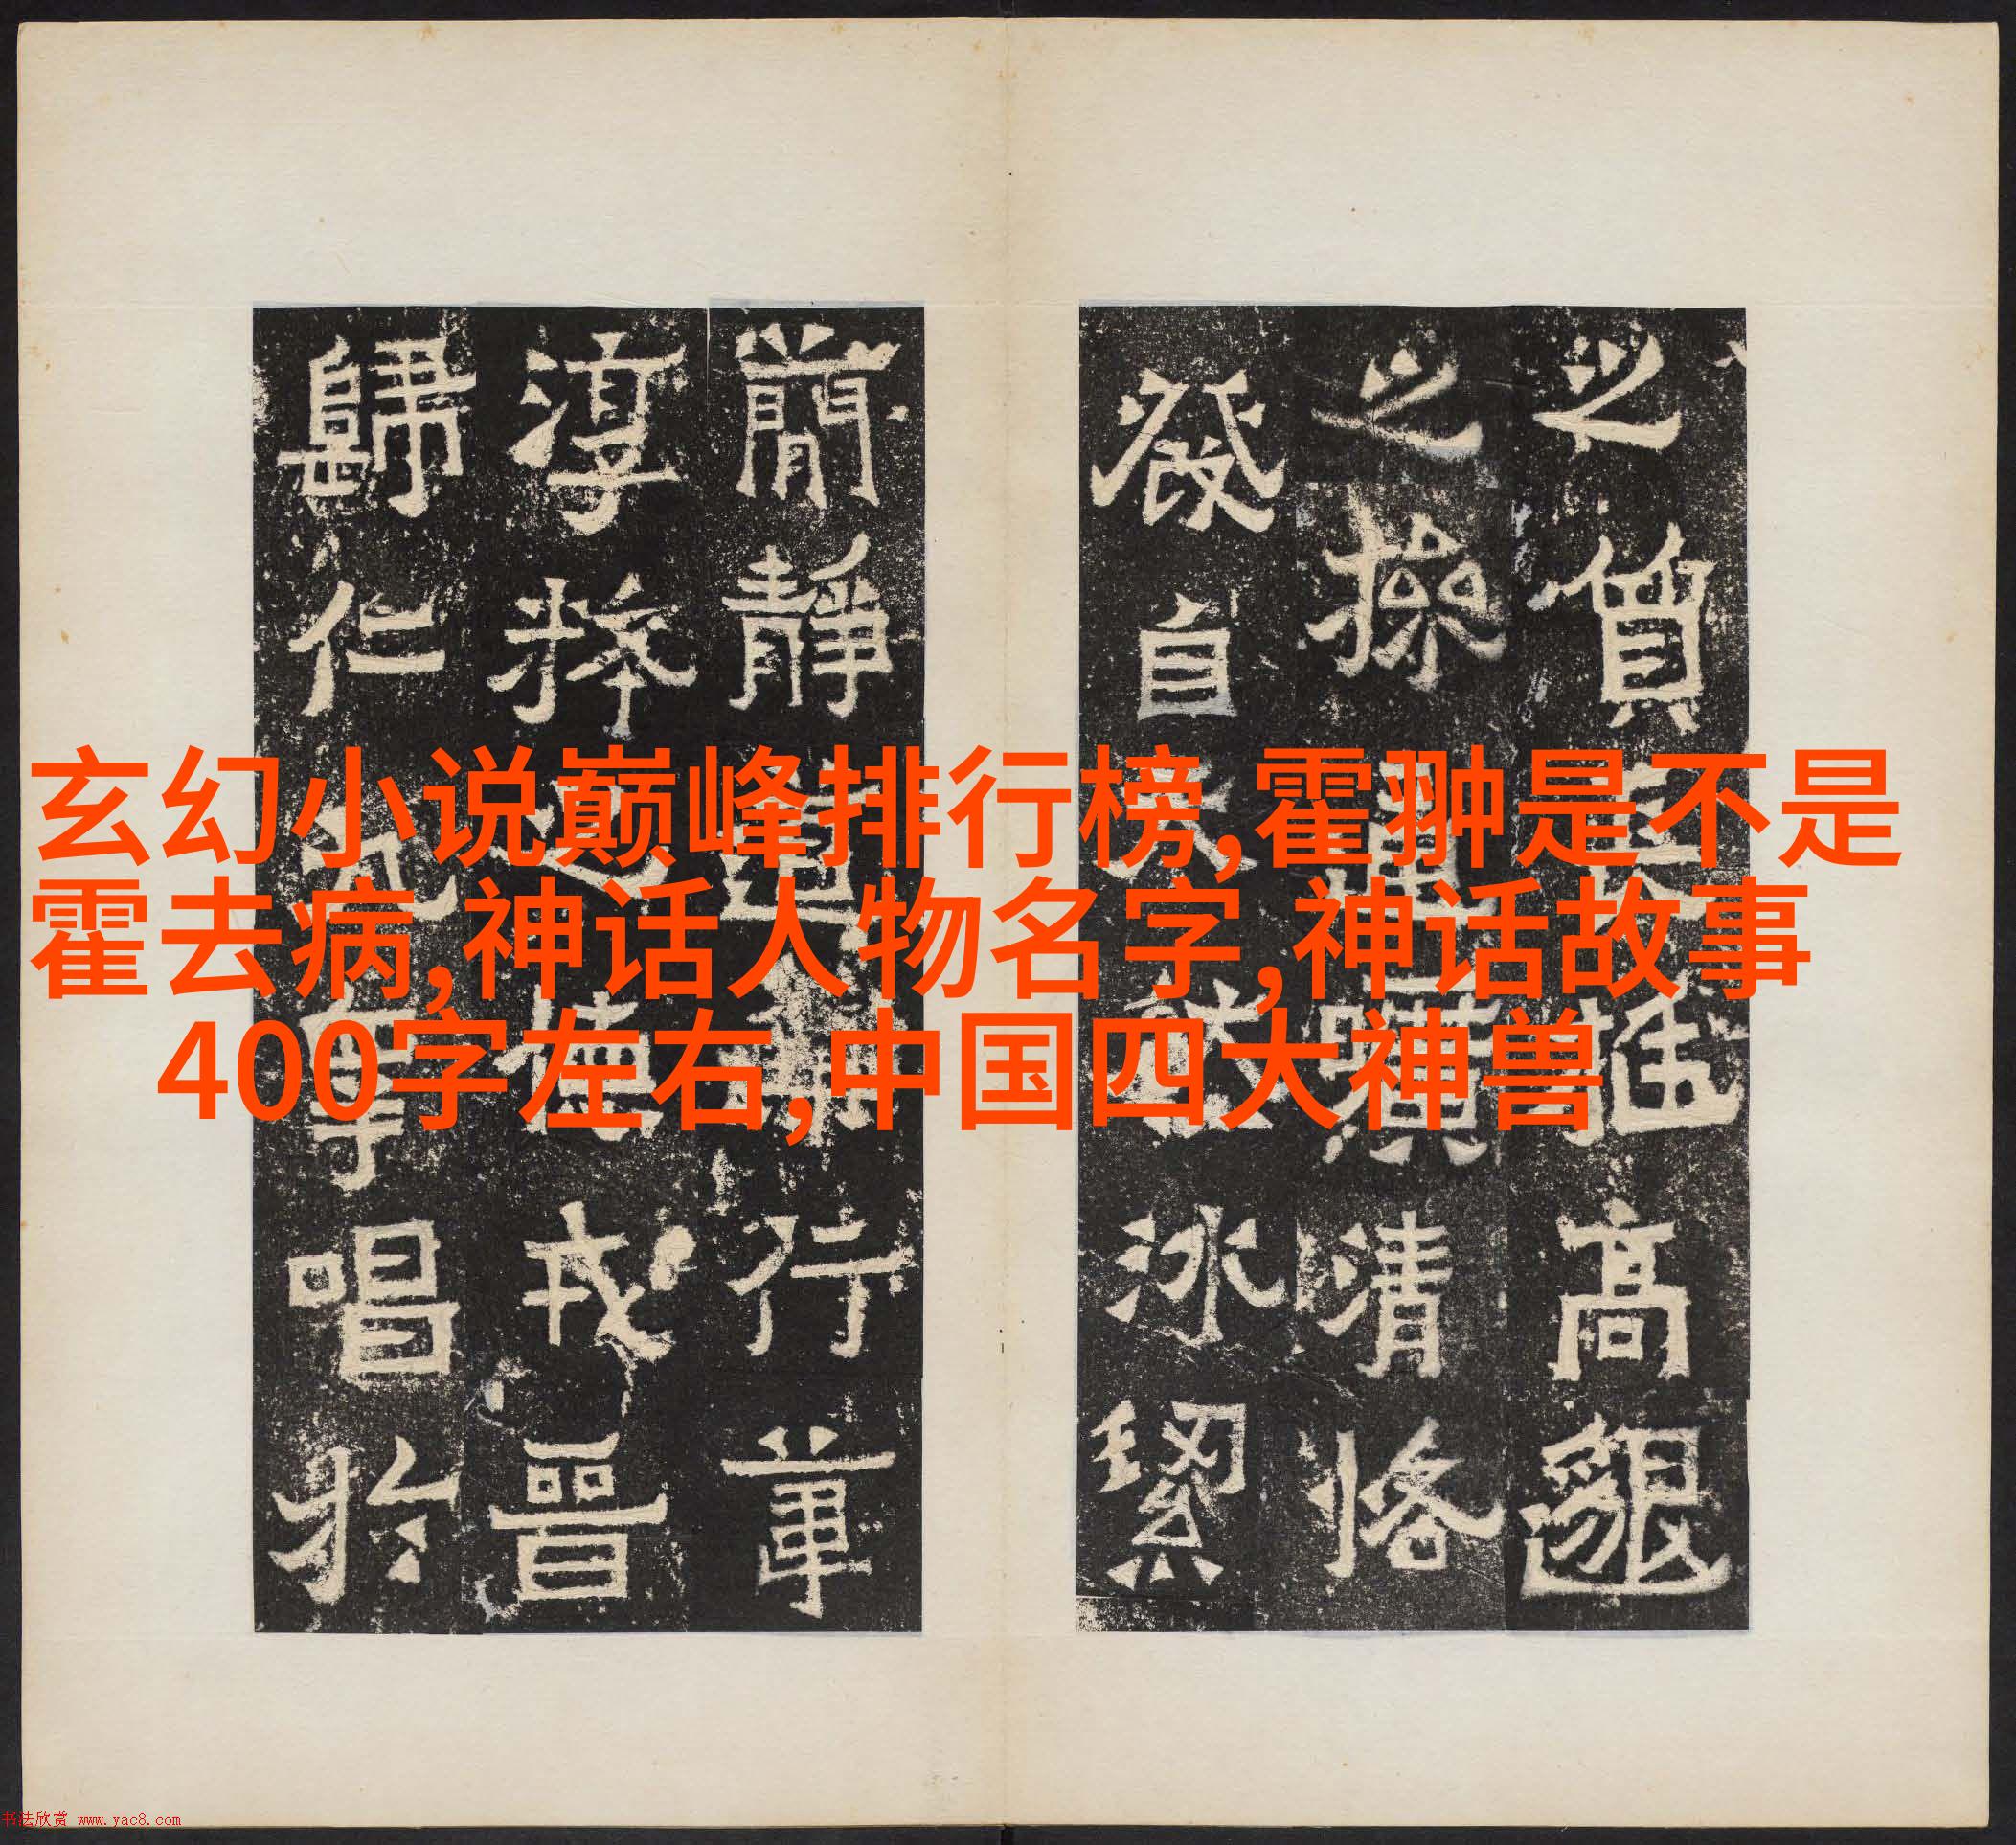 玄幻小说巅峰排行榜,霍翀是不是
霍去病,神话人物名字,神话故事
400字左右,中国四大神兽
之質高邈
之操清恪
發自冰絜
簡靜行
淳粹之德戎晉
歸仁九唱於
书法欣赏 www.yac8.com